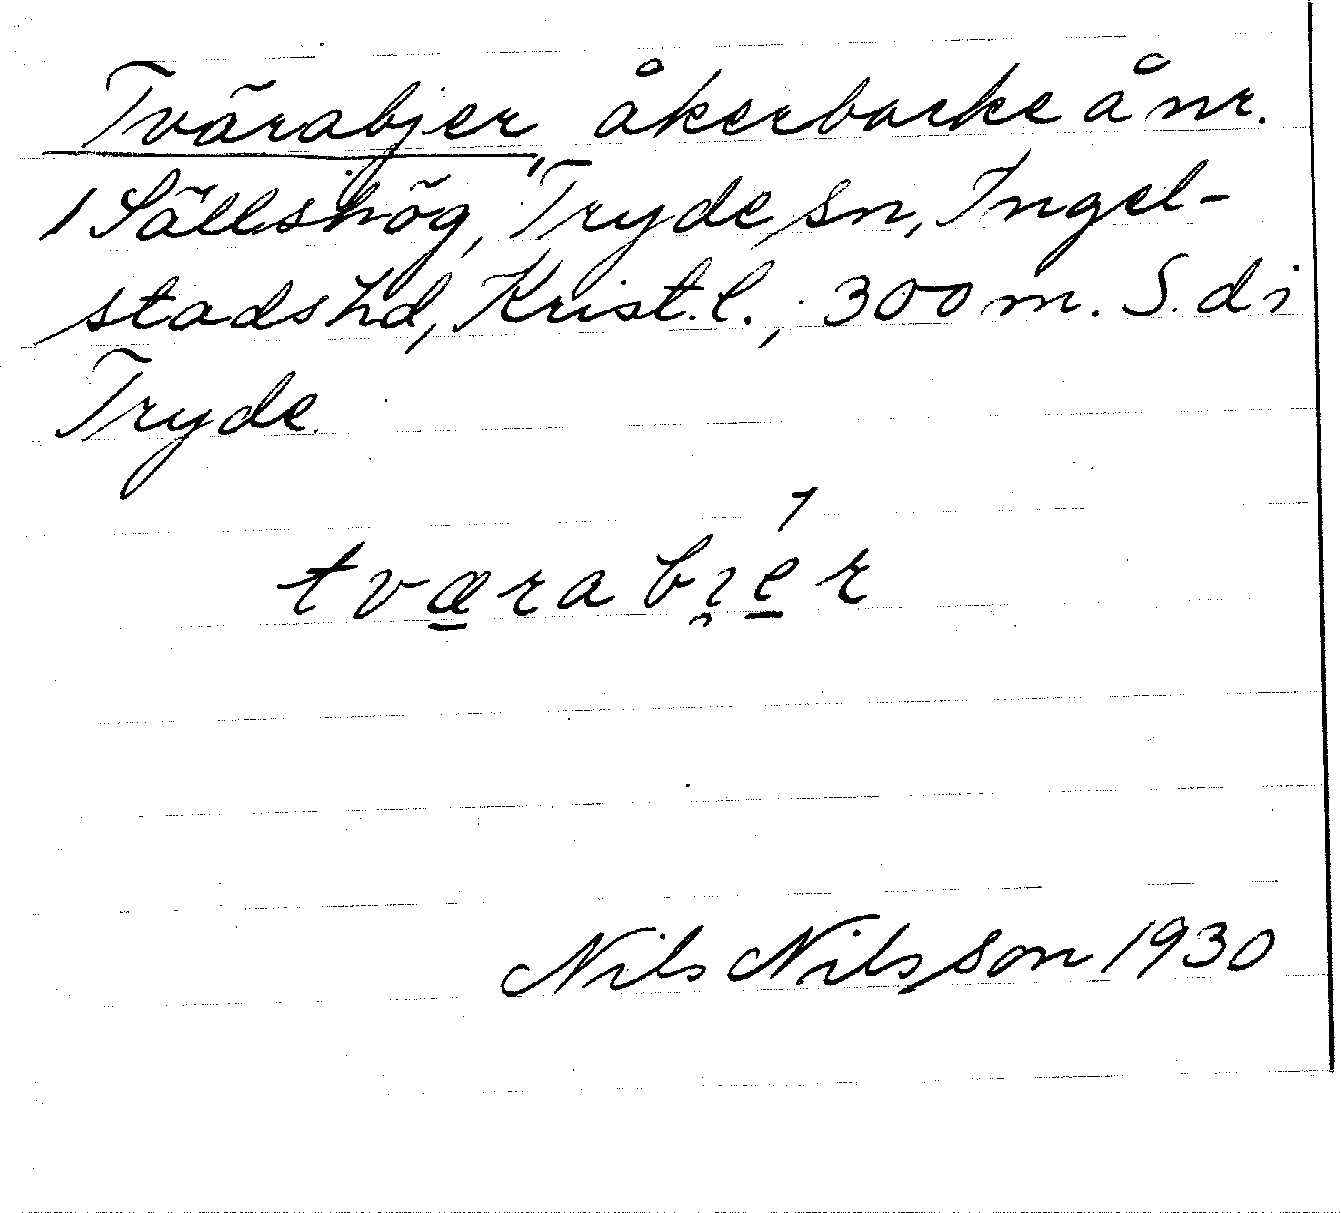 Tvärabjer, åkerbacke å nr.
1 Sällshög, Tryde sn, Ingel-
stads hd, Krist. l.; 300 m. S. d i
Tryde.
tværabi̯ér
Nils Nilsson 1930